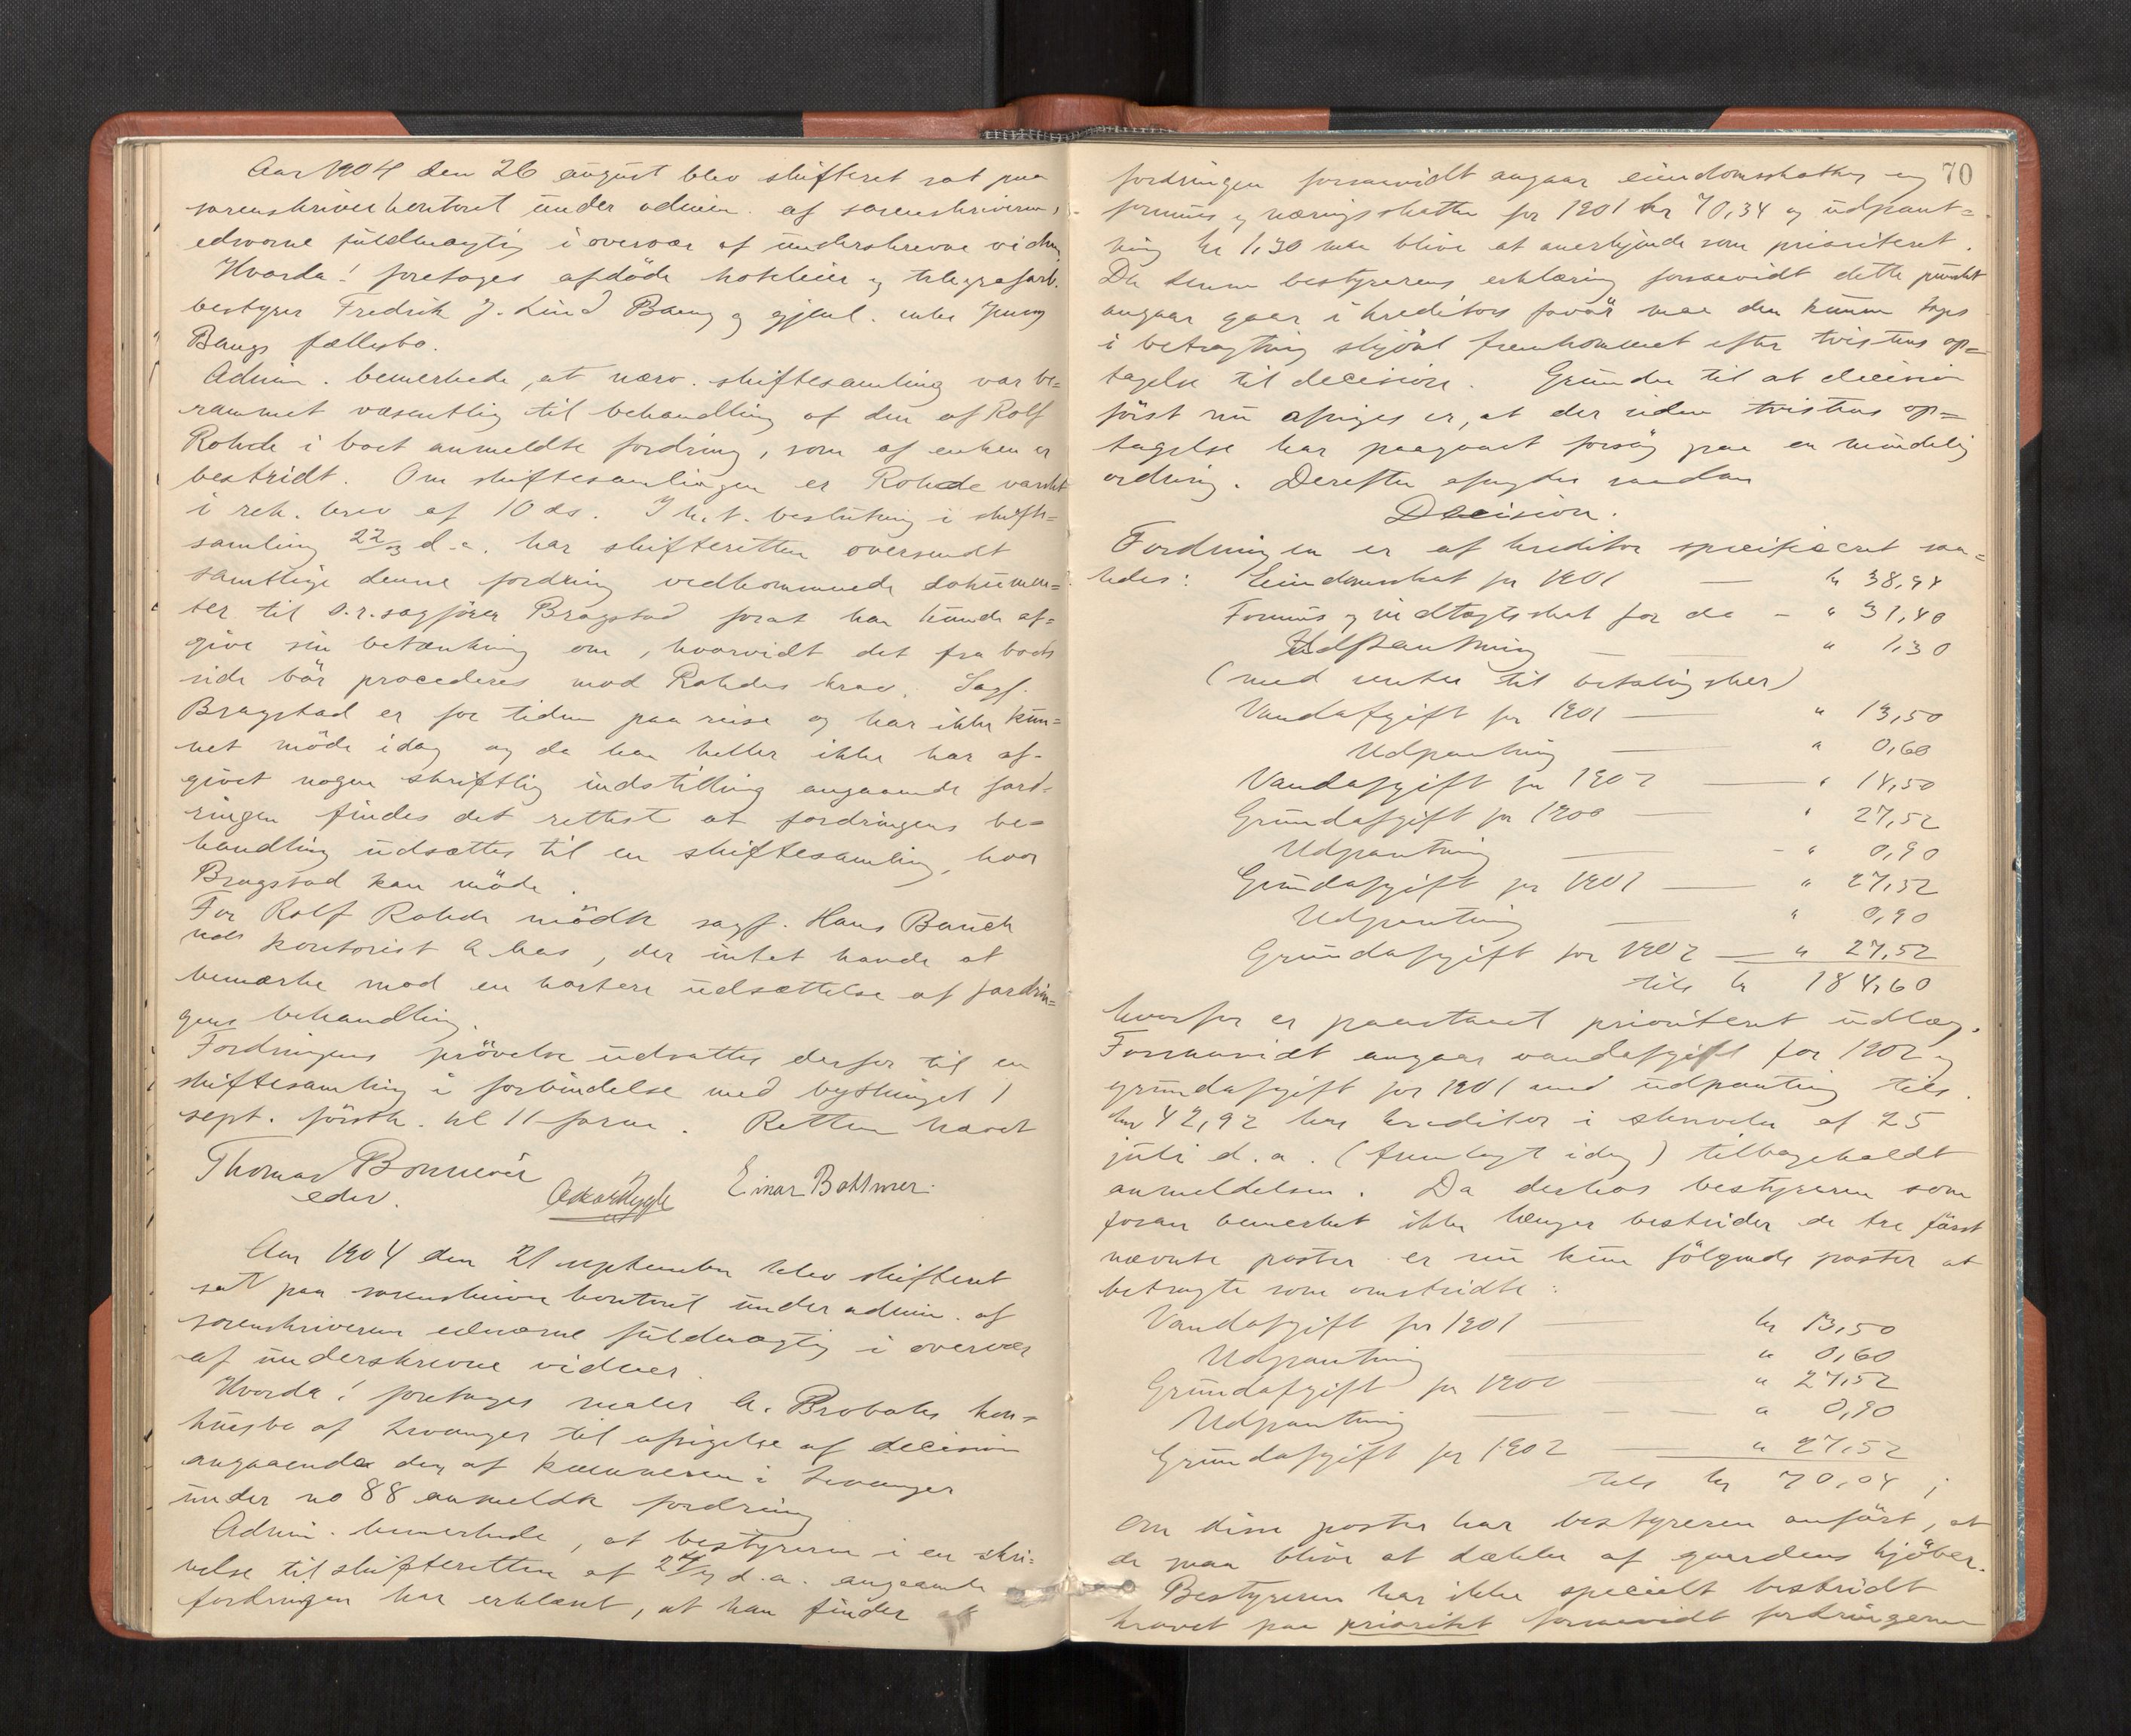 Aar 1904 den 26 august blev skifteret sat paa
sorenskriverkontoret under admin. af sorenskriverens
edsvorne fuldmægtig i overvær af underskrevne vidner
Hvorda! foretoges afdöde hoteleier og telegrafarb.
bestyrer Fredrik J. Lind Bang og gjenl. enke Jenny
Bangs fællesbo.
Admin. bemerkede, at nærv. skiftesamling var be=
rammet væsentlig til behandling af den af Rolf
Rohde i boet anmeldte fordring, som af enken er
bestridt. Om skiftesamlingen er Rohde varslet
i rek. brev af 10 ds. I h.t. beslutning i skifte=
samling 22/3 d.a. har skifteretten oversendt
samtlige denne fordring vedkommende dokumen=
ter til o.r.sagförer Bragstad forat han kunde af=
give sin betænkning om, hvorvidt det fra boets
side bör procederes mod Rohdes krav. Sagf.
Bragstad er for tiden paa reise og har ikke kun=
net möde idag og da han heller ikke har af=
givet nogen skriftlig indstilling angaaende ford=
ringen findes det rettest at fordringens be=
handling udsættes til en skiftesamling, hvor
Bragstad kan möde.
For Rolf Rohde mödte sagf. Hans Bauck
ved kontorist Aas, der intet havde at
bemærke mod en kortere udsættelse af fordrin=
gens behandling.
Fordringens prövelse udsattes derfor til en
skiftesamling i forbindelse med bythinget 1
sept. förstk. kl 11 form. Retten hævet
Thomas Bonnevie
edsv.
Einar Bottmer.
Aar 1904 den 21 september blev skifteret
sat paa sorenskriverkontoret under admin. af
sorenskriverens edsvorne fuldmægtig i overvær
af underskrevne vidner.
Hvorda! foretoges maler A. Brobaks kon=
kursbo af Levanger til afsigelse af decision
angaaende den af kæmneren i Levanger
under no 88 anmeldte fordring
Admin. bemerkede, at bestyreren i en skri=
velse til skifteretten af d.a. angaaende
fordringen har erklært, at han finder at
70
fordringen forsaavidt angaar eiendomsskatten og
formues og næringsskatten for 1901 kr 70,34 og udpant=
ning kr 1,30 maa blive at anerkjende som prioriteret.
Da denne bestyrerens erklæring forsaavidt dette punkt
angaar gaar i kreditors favör maa den kunne tages
i betragtning skjönt fremkommet efter tvistens op=
tagelse til decision. Grunden til at decision
först nu afsiges er, at der siden tvistens op=
tagelse har paagaaet forsög paa en mindelig
ordning. Derefter afsagdes saadan
Decision.
Fordringen er af kreditor specificeret saa=
ledes: Eiendomsskat for 1901 — kr 38,94
Formues og indtægtsskat for do – " 31,40
Udpantning — " 1,30
(med renter til betaling sker)
Vandafgift for 1901 — " 13,50
Udpantning — " 0,60
Vandafgift for 1902 — " 14,50
Grundafgift for 1900 — " 27,52
Udpantning — " 0,90
Grundafgift for 1901 — " 27,52
Udpantning — " 0,90
Grundafgift for 1902 — " 27,52
tils kr 184,60
hvorfor er paastaaet prioriteret udlæg.
Forsaavidt angaar vandafgift for 1902 og
grundafgift for 1901 med udpantning tils.
kr 42,92 har kreditor i skrivelse af 25
juli d.a. (fremlagt idag) tilbageholdt
anmeldelsen. Da derhos bestyreren som
foran bemerket ikke længer bestrider de tre först
nævnte poster er nu kun fölgende poster at
betragte som omstridte:
Vandafgift for 1901 — kr 13,50
Udpantning — " 0,60
Grundafgift for 1900 — " 27,52
Udpantning — " 0,90
Grundafgift for 1902 — " 27,52
tils kr 70,04;
Om disse poster har bestyreren anfört, at
de maa blive at dække af gaardens kjöber.
Bestyreren har ikke specielt bestridt
kravet paa prioritet forsaavidt fordringerne